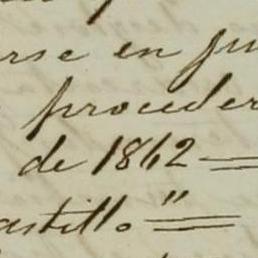 rse en ju
proceder
de 1862 =
astillo " =